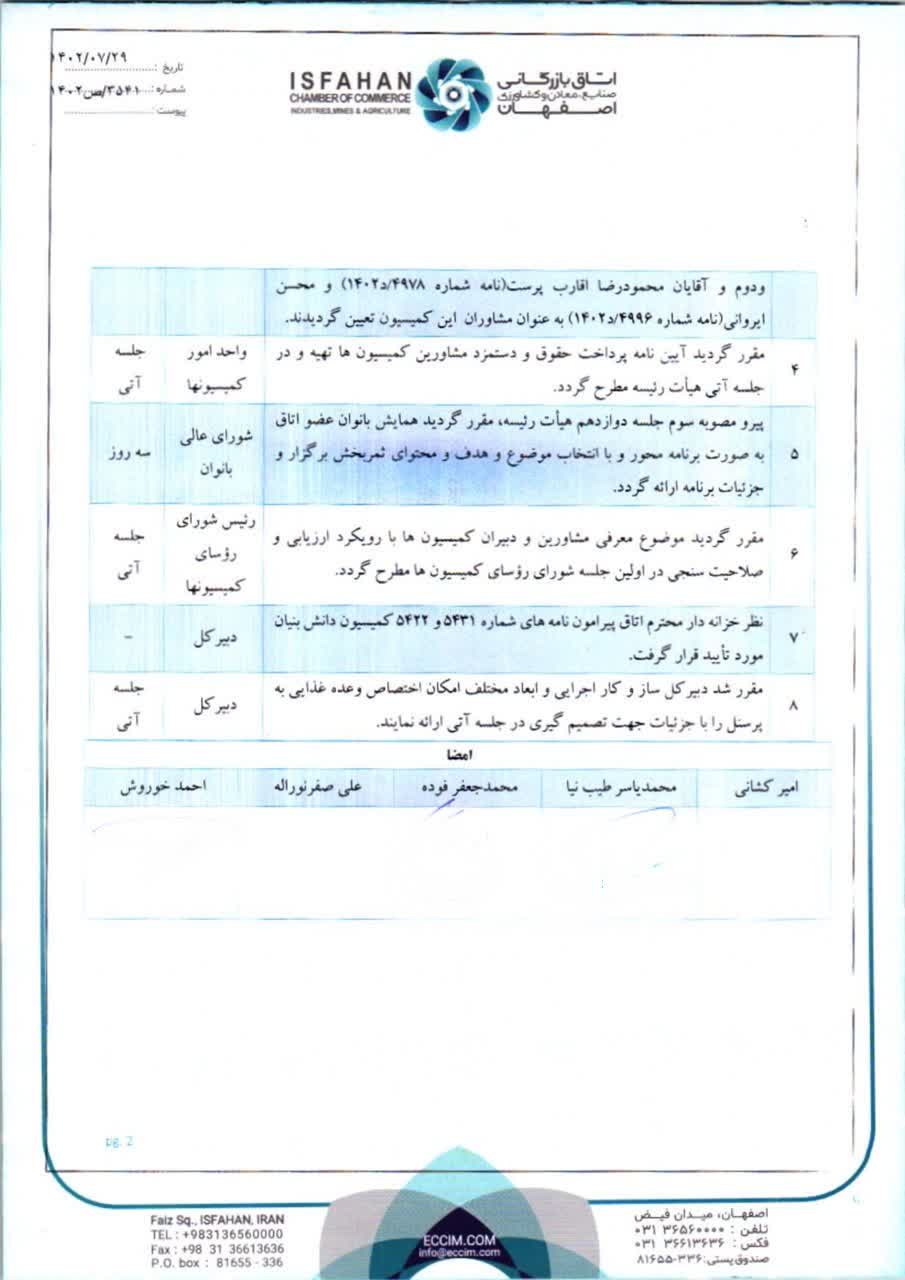 تاریخ : ۱۴۰۲/۰۷/۲۹
شماره: ۳۵۴۱/ص۱۴۰۲
پیوست :
ISFAHAN
CHAMBER OF COMMERCE
INDUSTRIES, MINES & AGRICULTURE
اتاق بازرگانی
صنایع، معادن و کشاورزی
اصفهان
ودوم و آقایان محمودرضا اقارب پرست(نامه شماره ۴۹۷۸/د۱۴۰۲) و محسن
ایروانی(نامه شماره ۴۹۹۶/د۱۴۰۲) به عنوان مشاوران این کمیسیون تعیین گردیدند.
۴
مقرر گردید آیین نامه پرداخت حقوق و دستمزد مشاورین کمیسیون ها تهیه و در
جلسه آتی هیأت رئیسه مطرح گردد.
واحد امور
کمیسیونها
جلسه
آتی
۵
پیرو مصوبه سوم جلسه دوازدهم هیأت رئیسه، مقرر گردید همایش بانوان عضو اتاق
به صورت برنامه محور و با انتخاب موضوع و هدف و محتوای ثمربخش برگزار و
جزئیات برنامه ارائه گردد.
شورای عالی
بانوان
سه روز
۶
مقرر گردید موضوع معرفی مشاورین و دبیران کمیسیون ها با رویکرد ارزیابی و
صلاحیت سنجی در اولین جلسه شورای رؤسای کمیسیون ها مطرح گردد.
رئیس شورای
رؤسای
کمیسیونها
جلسه
آتی
۷
نظر خزانه دار محترم اتاق پیرامون نامه های شماره ۵۴۳۱ و ۵۴۲۲ کمیسیون دانش بنیان
مورد تأیید قرار گرفت.
دبیرکل
-
۸
مقرر شد دبیرکل ساز و کار اجرایی و ابعاد مختلف امکان اختصاص وعده غذایی به
پرسنل را با جزئیات جهت تصمیم گیری در جلسه آتی ارائه نمایند.
دبیرکل
جلسه
آتی
امضا
امیر کشانی
محمدیاسر طیب نیا
محمدجعفر فوده
علی صفرنوراله
احمد خوروش
pg. 2
Faiz Sq., ISFAHAN, IRAN
TEL : +983136560000
Fax : +98 31 36613636
P.O. box : 81655 - 336
ECCIM.COM
info@eccim.com
اصفهان، میدان فیض
تلفن : ۳۶۵۶۰۰۰۰ ۰۳۱
فکس : ۳۶۶۱۳۶۳۶ ۰۳۱
صندوق پستی: ۳۳۶-۸۱۶۵۵